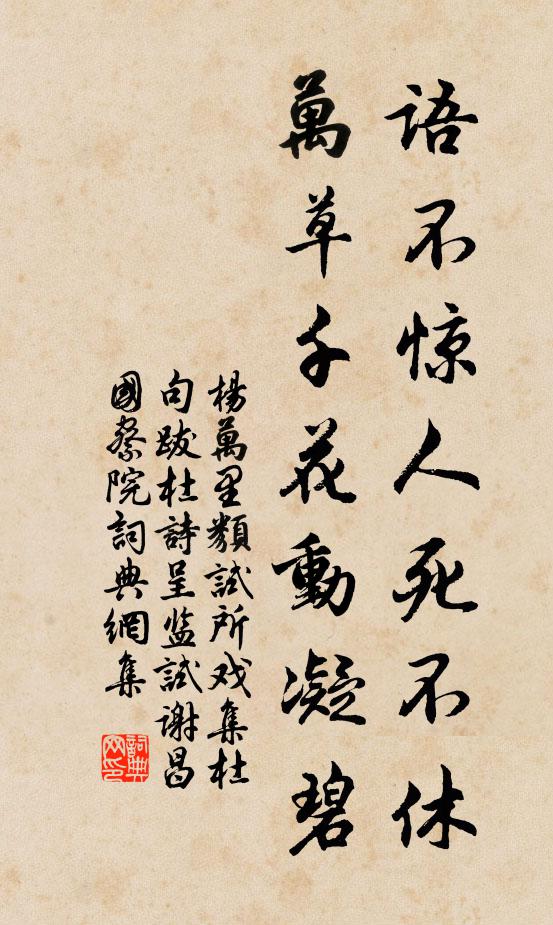 語不惊人死不休
萬草千花動凝碧
楊萬里類試所戏集杜
句跋杜詩呈监試謝昌
國察院詞典網集
詞典网印